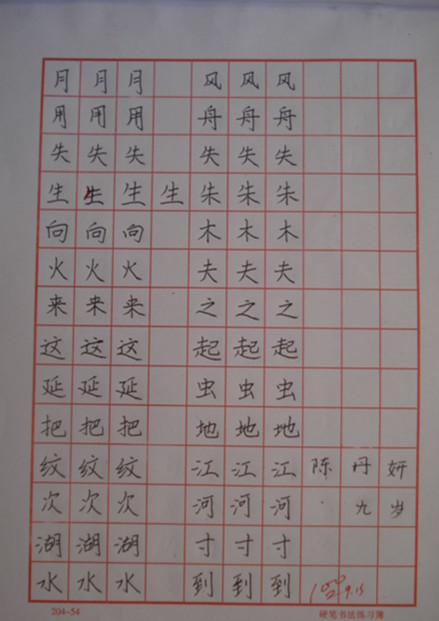 月月月 风风风
用用用 舟舟舟
失失失 失失失
生生生生 朱朱朱
向向向 木木木
火火火 夫夫夫
来来来 之之之
这这这 起起起
延延延 虫虫虫
把把把 地地地
纹纹纹 江江江 陈丹妍
次次次 河河河 九岁
湖湖湖 寸寸寸
水水水 到到到 100 9.15
204-54 硬笔书法练习簿